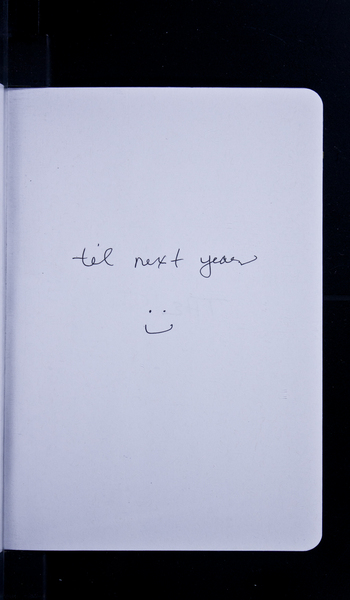 til next year